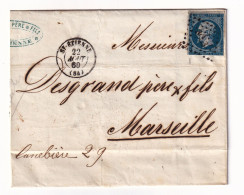 PÈRE & FILS
ETIENNE
ST-ETIENNE
22
AOUT
60
(84)
Messieurs
Desgrand père & fils
Marseille
Canebière 29.